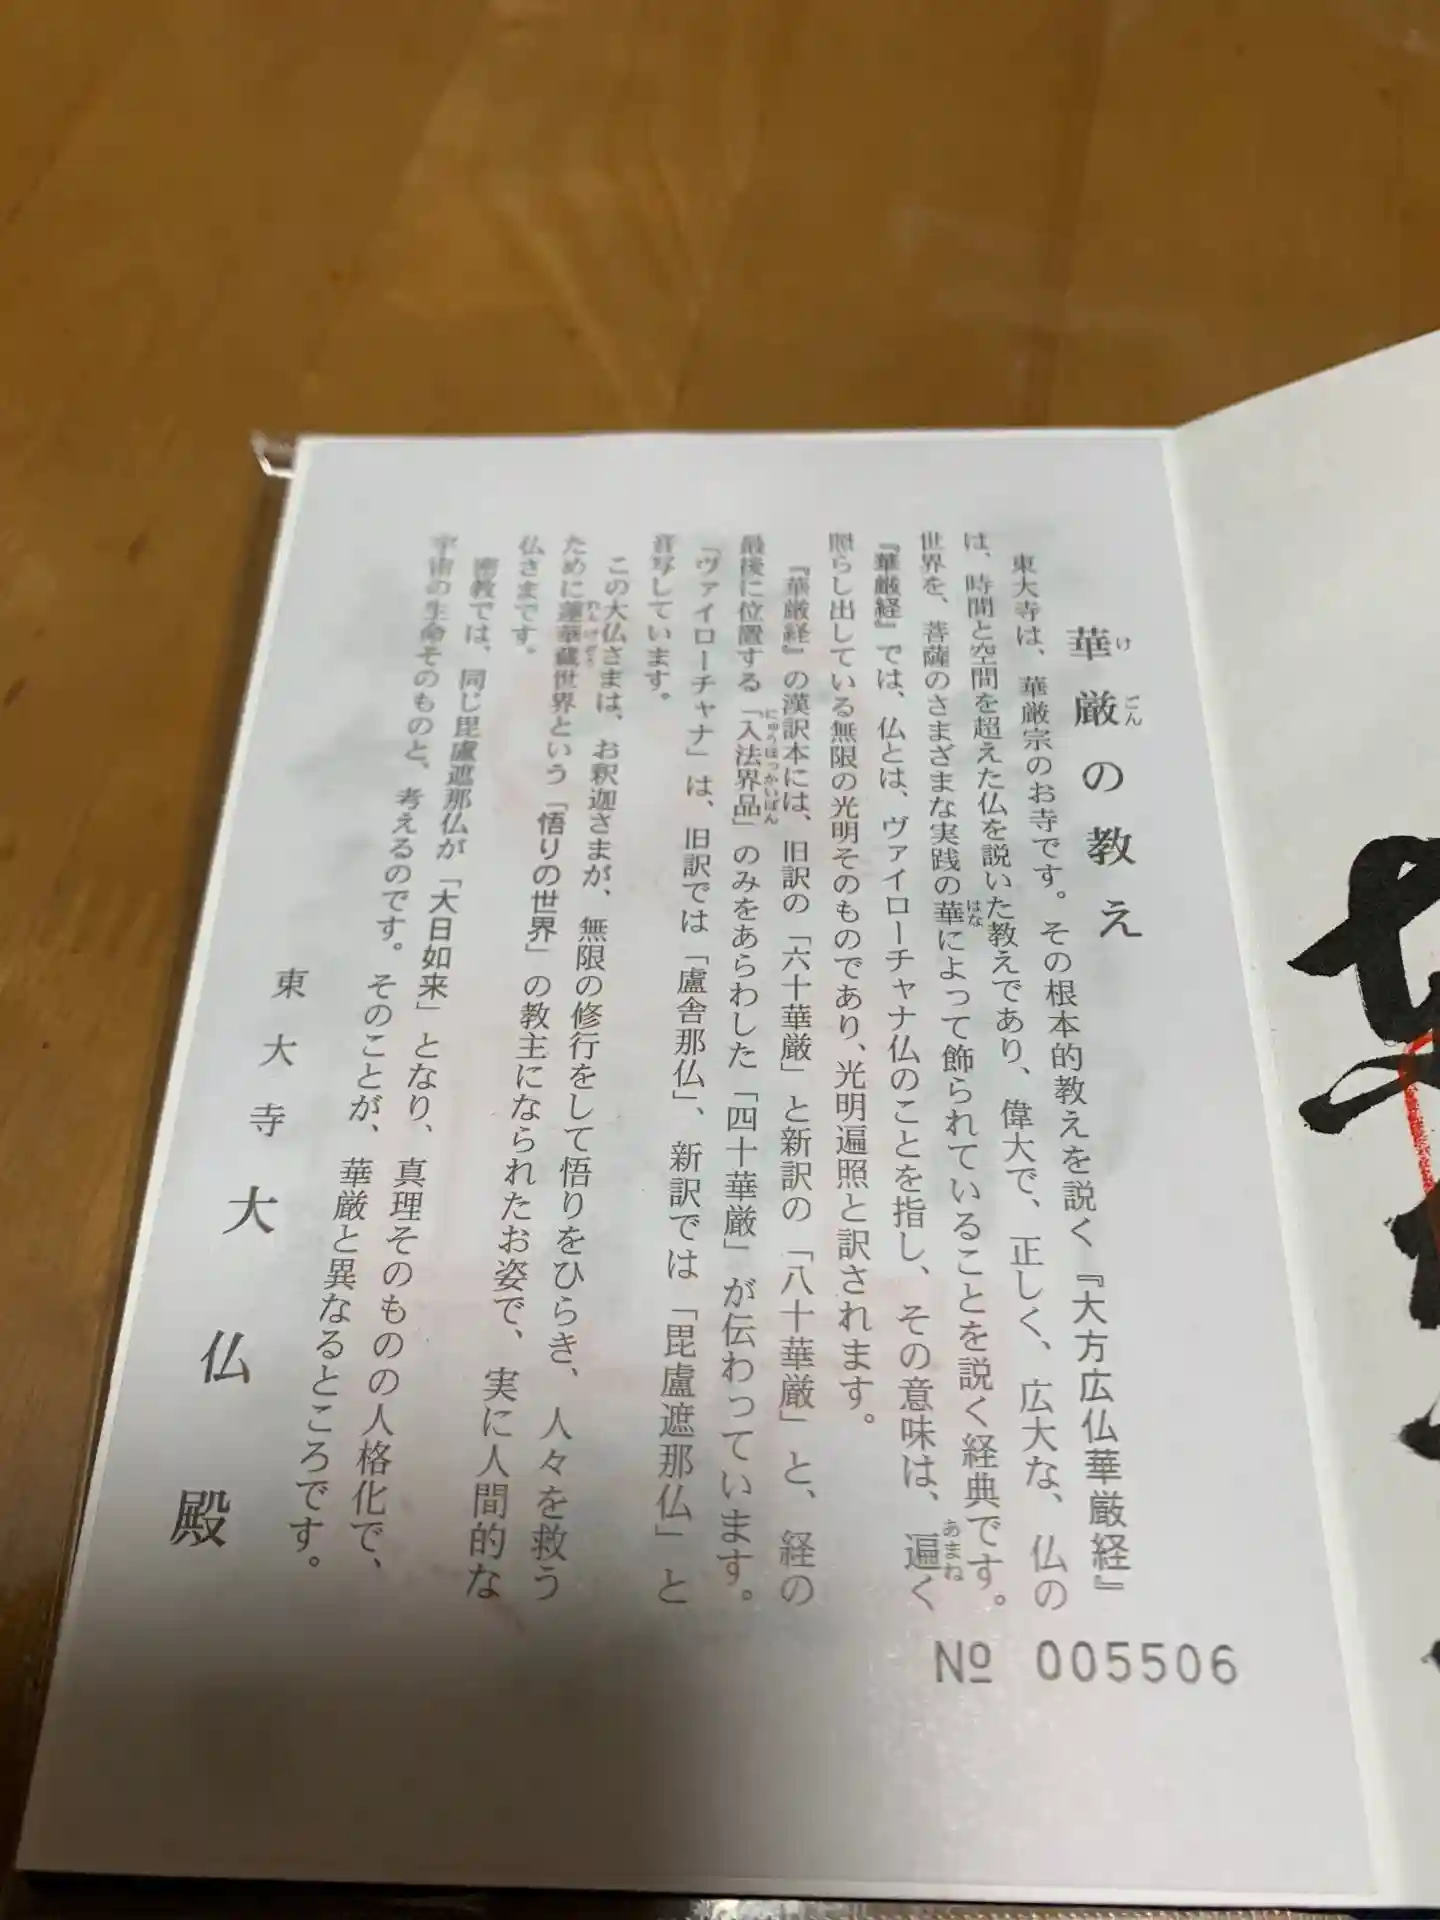 華厳の教え
東大寺は、華厳宗のお寺です。その根本的教えを説く『大方広仏華厳経』
は、時間と空間を超えた仏を説いた教えであり、偉大で、正しく、広大な、仏の
世界を、菩薩のさまざまな実践の華によって飾られていることを説く経典です。
『華厳経』では、仏とは、ヴァイローチャナ仏のことを指し、その意味は、遍く
照らし出している無限の光明そのものであり、光明遍照と訳されます。
『華厳経』の漢訳本には、旧訳の「六十華厳」と新訳の「八十華厳」と、経の
最後に位置する「入法界品」のみをあらわした「四十華厳」が伝わっています。
「ヴァイローチャナ」は、旧訳では「盧舎那仏」、新訳では「毘盧遮那仏」と
音写しています。
この大仏さまは、お釈迦さまが、無限の修行をして悟りをひらき、人々を救う
ために蓮華蔵世界という「悟りの世界」の教主になられたお姿で、実に人間的な
仏さまです。
密教では、同じ毘盧遮那仏が「大日如来」となり、真理そのものの人格化で、
宇宙の生命そのものと、考えるのです。そのことが、華厳と異なるところです。
東大寺大仏殿
№ 005506